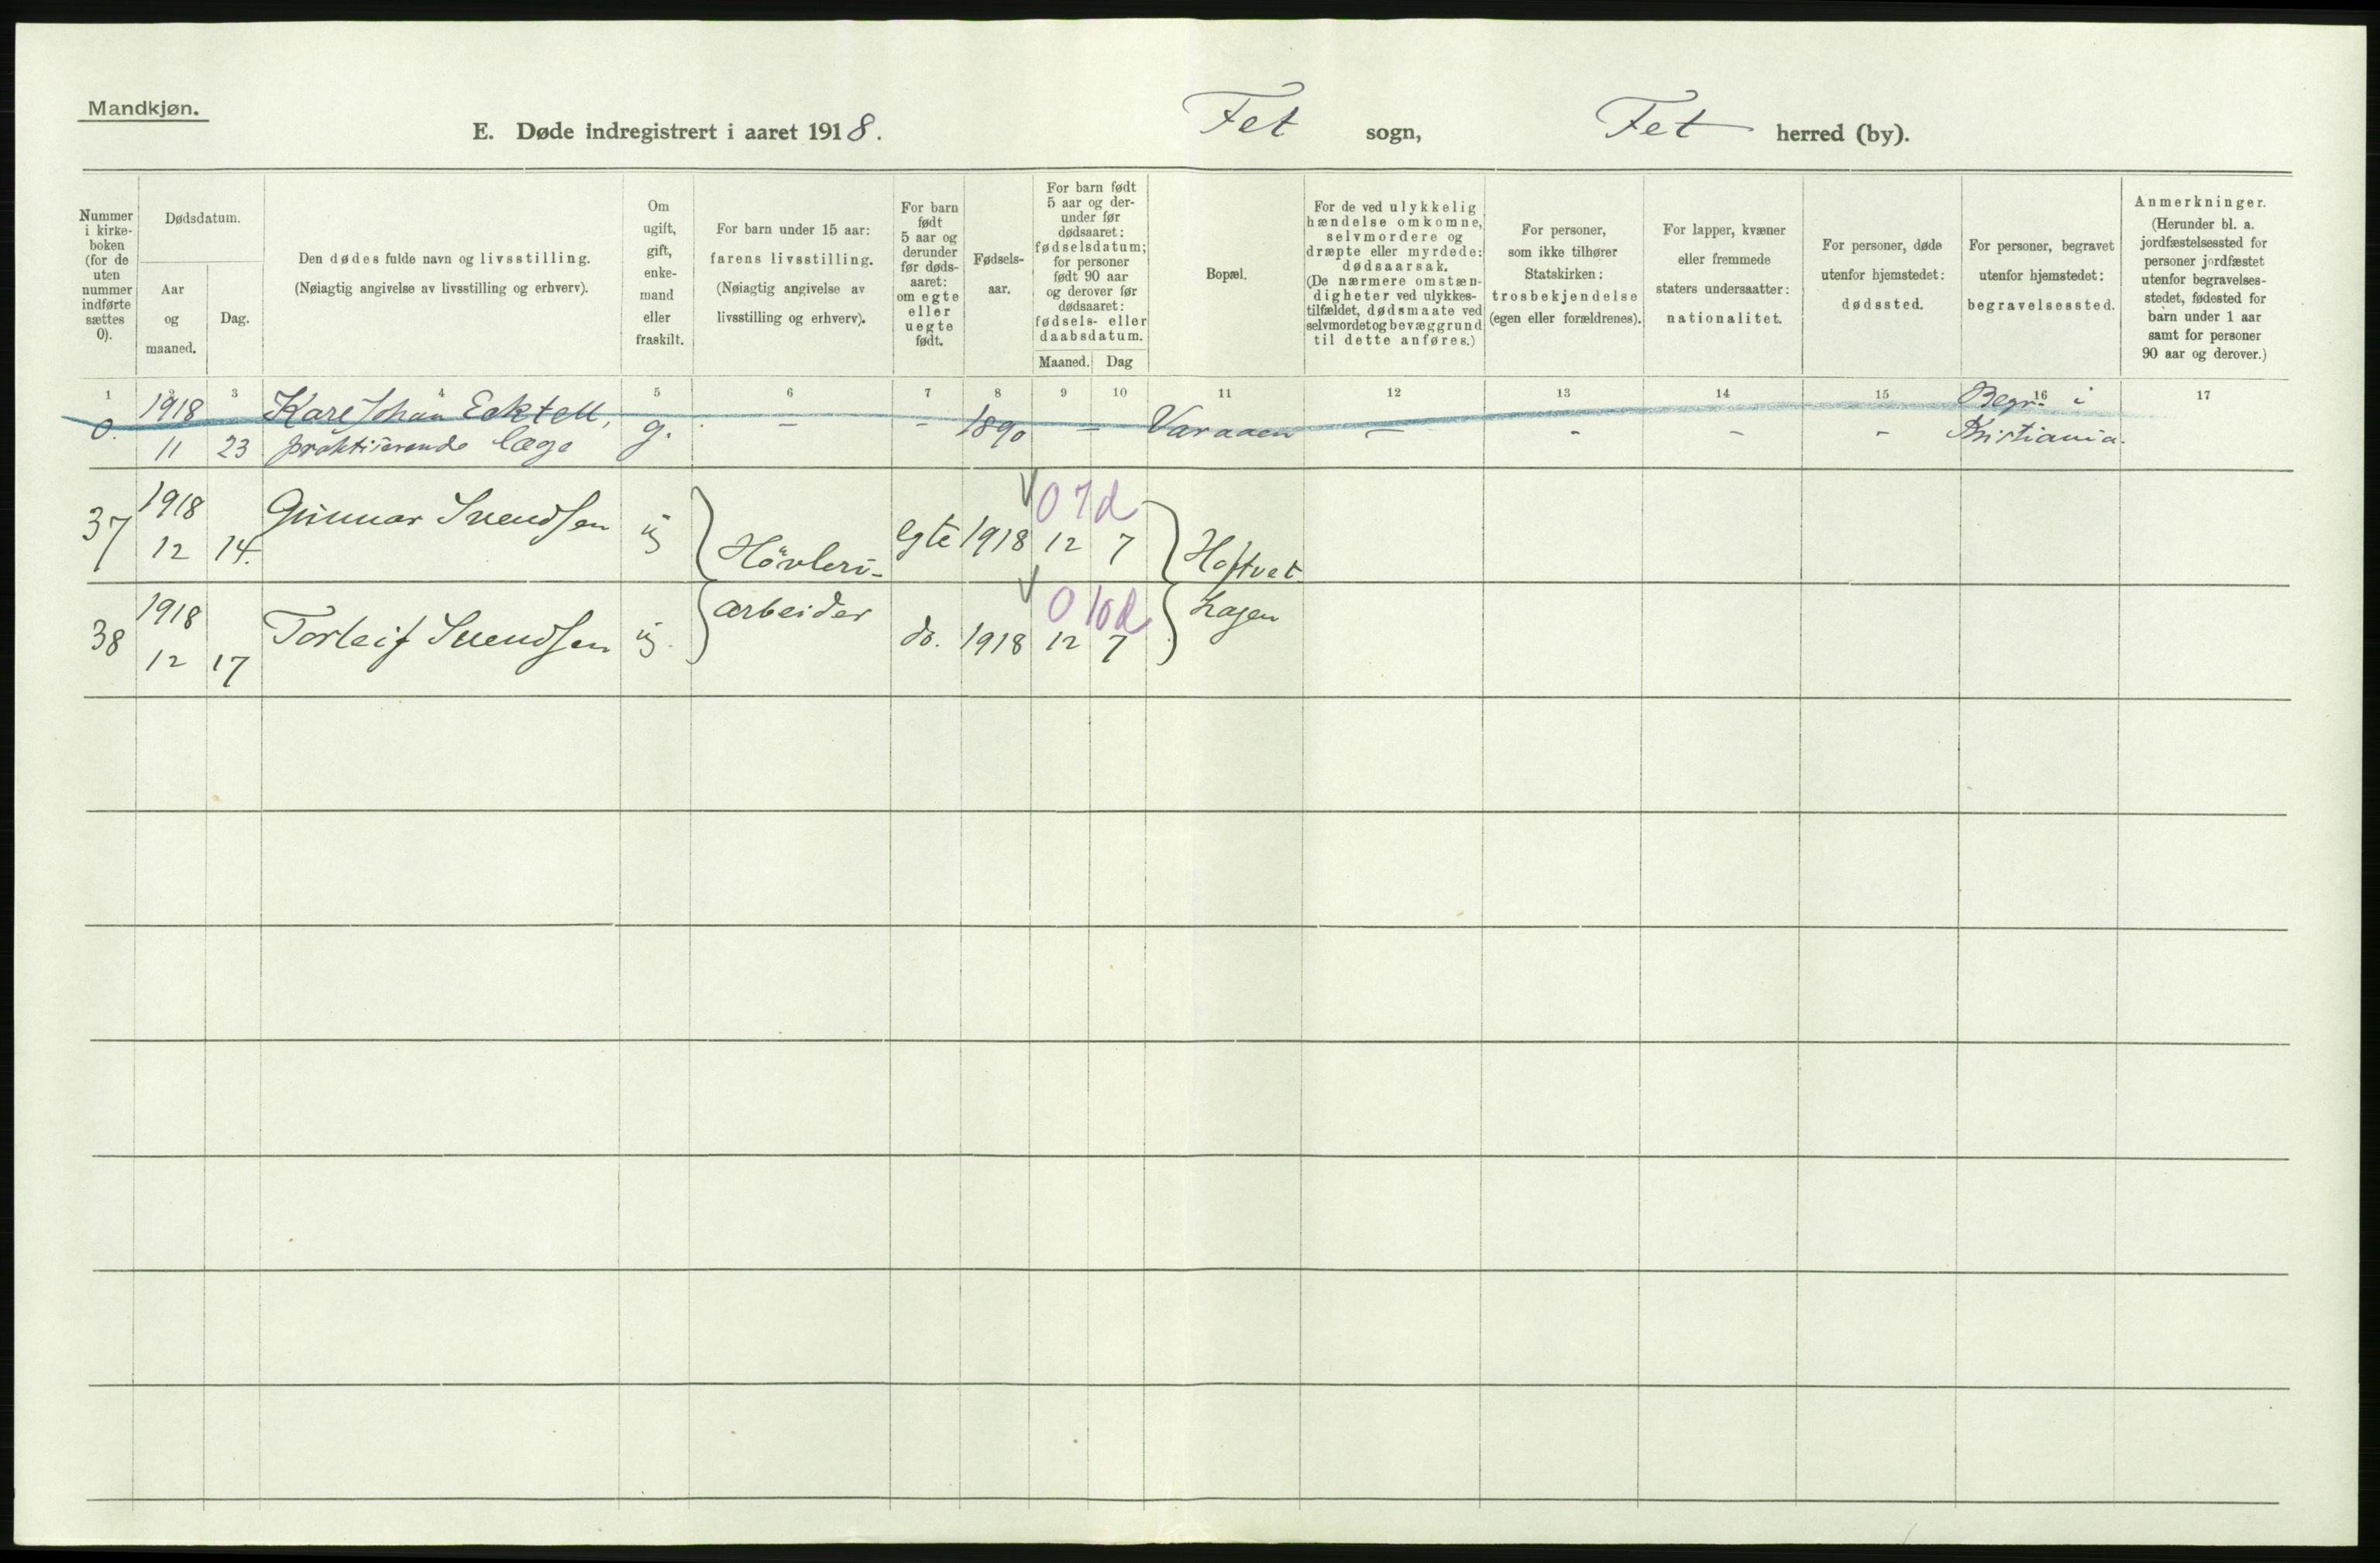 Mandkjøn.
E. Døde indregistrert i aaret 1918.
Fet sogn,
Fet herred (by).
Nummer
i kirke-
boken
(for de
uten
nummer
indførte
sættes
0).
Dødsdatum.
Aar
og
maaned.
Dag.
Den dødes fulde navn og livsstilling.
(Nøiagtig angivelse av livsstilling og erhverv).
Om
ugift,
gift,
enke-
mand
eller
fraskilt.
For barn under 15 aar:
farens livsstilling.
(Nøiagtig angivelse av
livsstilling og erhverv).
For barn
født
5 aar og
derunder
før døds-
aaret:
om egte
eller
uegte
født.
Fødsels-
aar.
For barn født
5 aar og der-
under før
dødsaaret:
fødselsdatum;
for personer
født 90 aar
og derover før
dødsaaret:
fødsels- eller
daabsdatum.
Maaned.
Dag
Bopæl.
For de ved ulykkelig
hændelse omkomne,
selvmordere og
dræpte eller myrdede:
dødsaarsak.
(De nærmere omstæn-
digheter ved ulykkes-
tilfældet, dødsmaate ved
selvmordet og bevæggrund
til dette anføres.)
For personer,
som ikke tilhører
Statskirken:
trosbekjendelse
(egen eller forældrenes).
For lapper, kvæner
eller fremmede
staters undersaatter:
nationalitet.
For personer, døde
utenfor hjemstedet:
dødssted.
For personer, begravet
utenfor hjemstedet:
begravelsessted.
Anmerkninger.
(Herunder bl. a.
jordfæstelsessted for
personer jordfæstet
utenfor begravelses-
stedet, fødested for
barn under 1 aar
samt for personer
90 aar og derover.)
1 2 3 4 5 6 7 8 9 10 11 12 13 14 15 16 17
1918 Karl Johan Begr. i
0. 11 23 praktiserende læge g. - - 1890 - Varaaen - - - - Kristiania.
1918 0 7d
37 12 14. Gunnar Svendsen ug Hövleri- egte 1918 12 7 Hoftvet
1918 arbeider 0 10d hagen
38 12 17 Torleif Svendsen ug. do. 1918 12 7